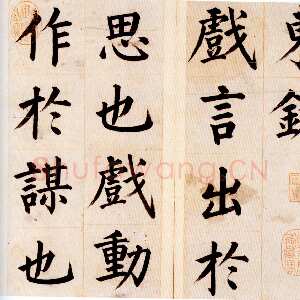 戲言出於
思也戲動
作於謀也
Shufawang.CN